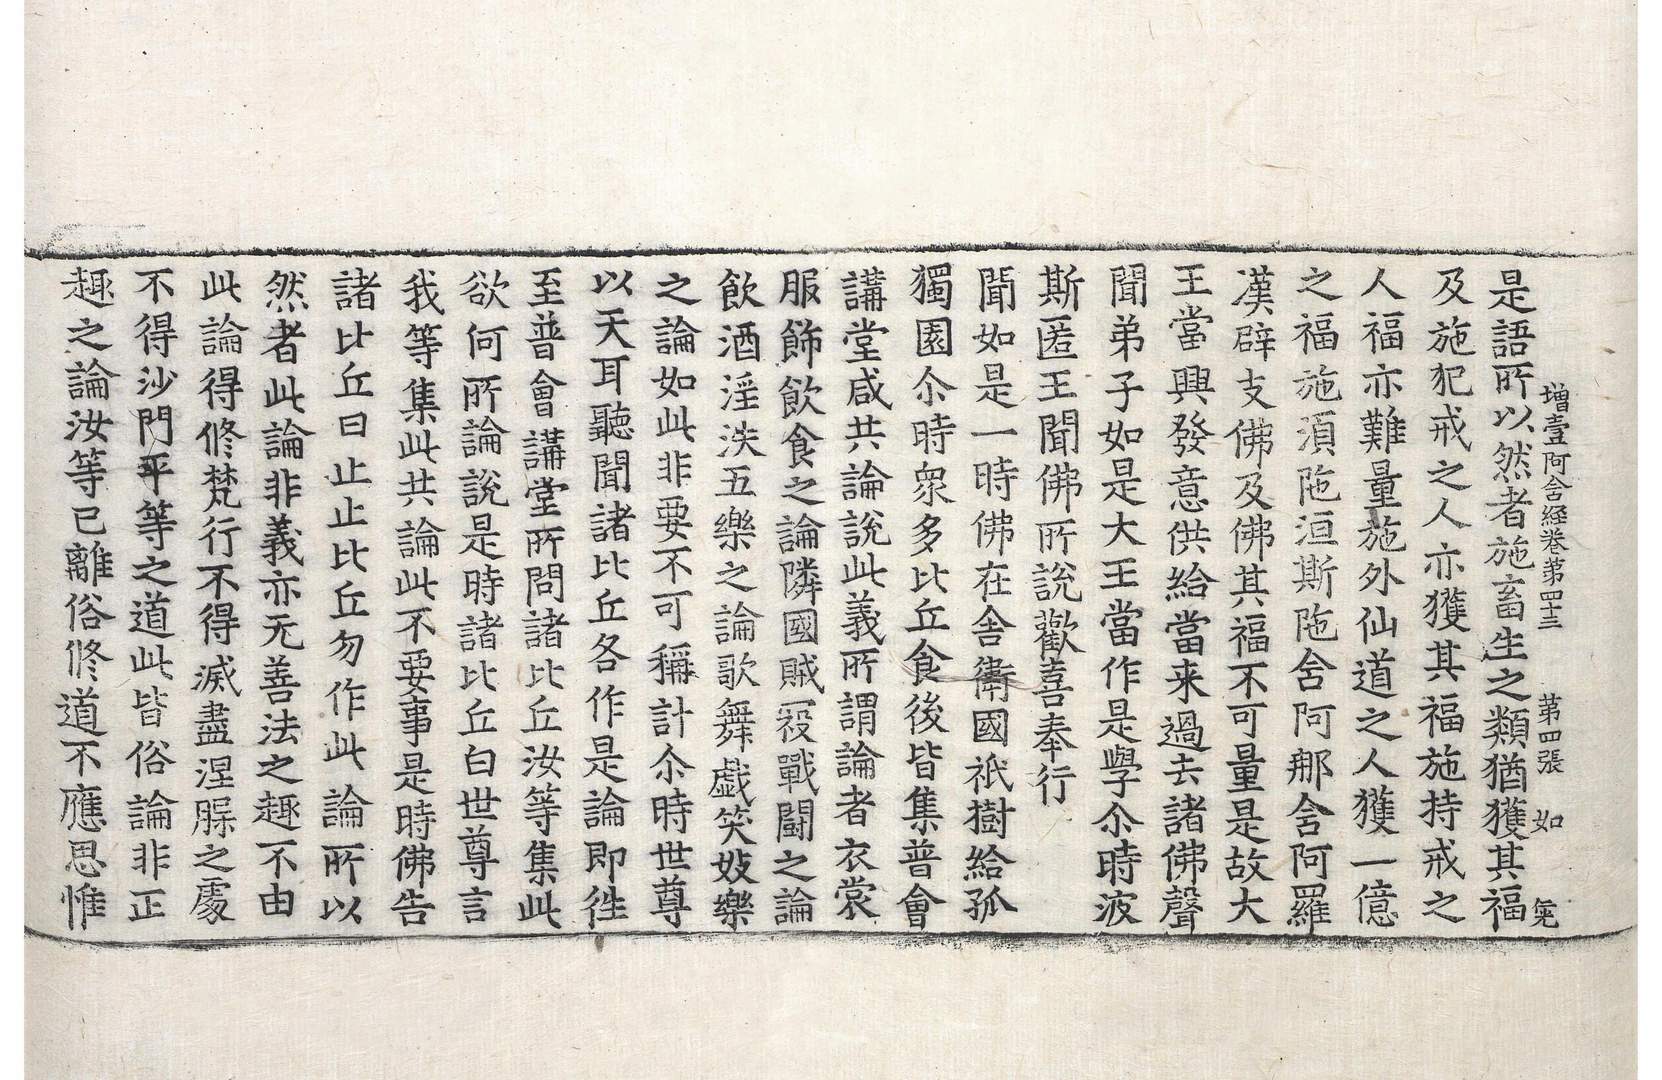 增壹阿含経卷第四十三 第四張 如
是語所以然者施畜生之類猶獲其福
及施犯戒之人亦獲其福施持戒之
人福亦難量施外仙道之人獲一億
之福施湏陁洹斯陁含阿那含阿羅
漢辟支佛及佛其福不可量是故大
王當興發意供給當来過去諸佛聲
聞弟子如是大王當作是學尒時波
斯匿王聞佛所說歡喜奉行
聞如是一時佛在舍衞國祇樹給孤
獨園尒時衆多比丘食後皆集普會
講堂咸共論說此義所謂論者衣裳
服飾飲食之論隣國賊冦戰鬪之論
飲酒淫泆五樂之論歌舞戱笑妓樂
之論如此非要不可稱計尒時世尊
以天耳聽聞諸比丘各作是論即徃
至普會講堂所問諸比丘汝等集此
欲何所論說是時諸比丘白世尊言
我等集此共論此不要事是時佛告
諸比丘曰止止比丘勿作此論所以
然者此論非義亦无善法之趣不由
此論得修梵行不得滅盡涅槃之處
不得沙門平等之道此皆俗論非正
趣之論汝等已離俗修道不應思惟